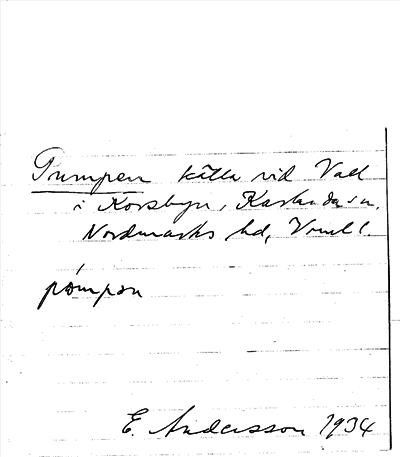 Pumpen källa vid Vall
i Korsbyn, Karlanda sn,
Nordmarks hd, Vrml.
pømpən
E. Andersson 1934